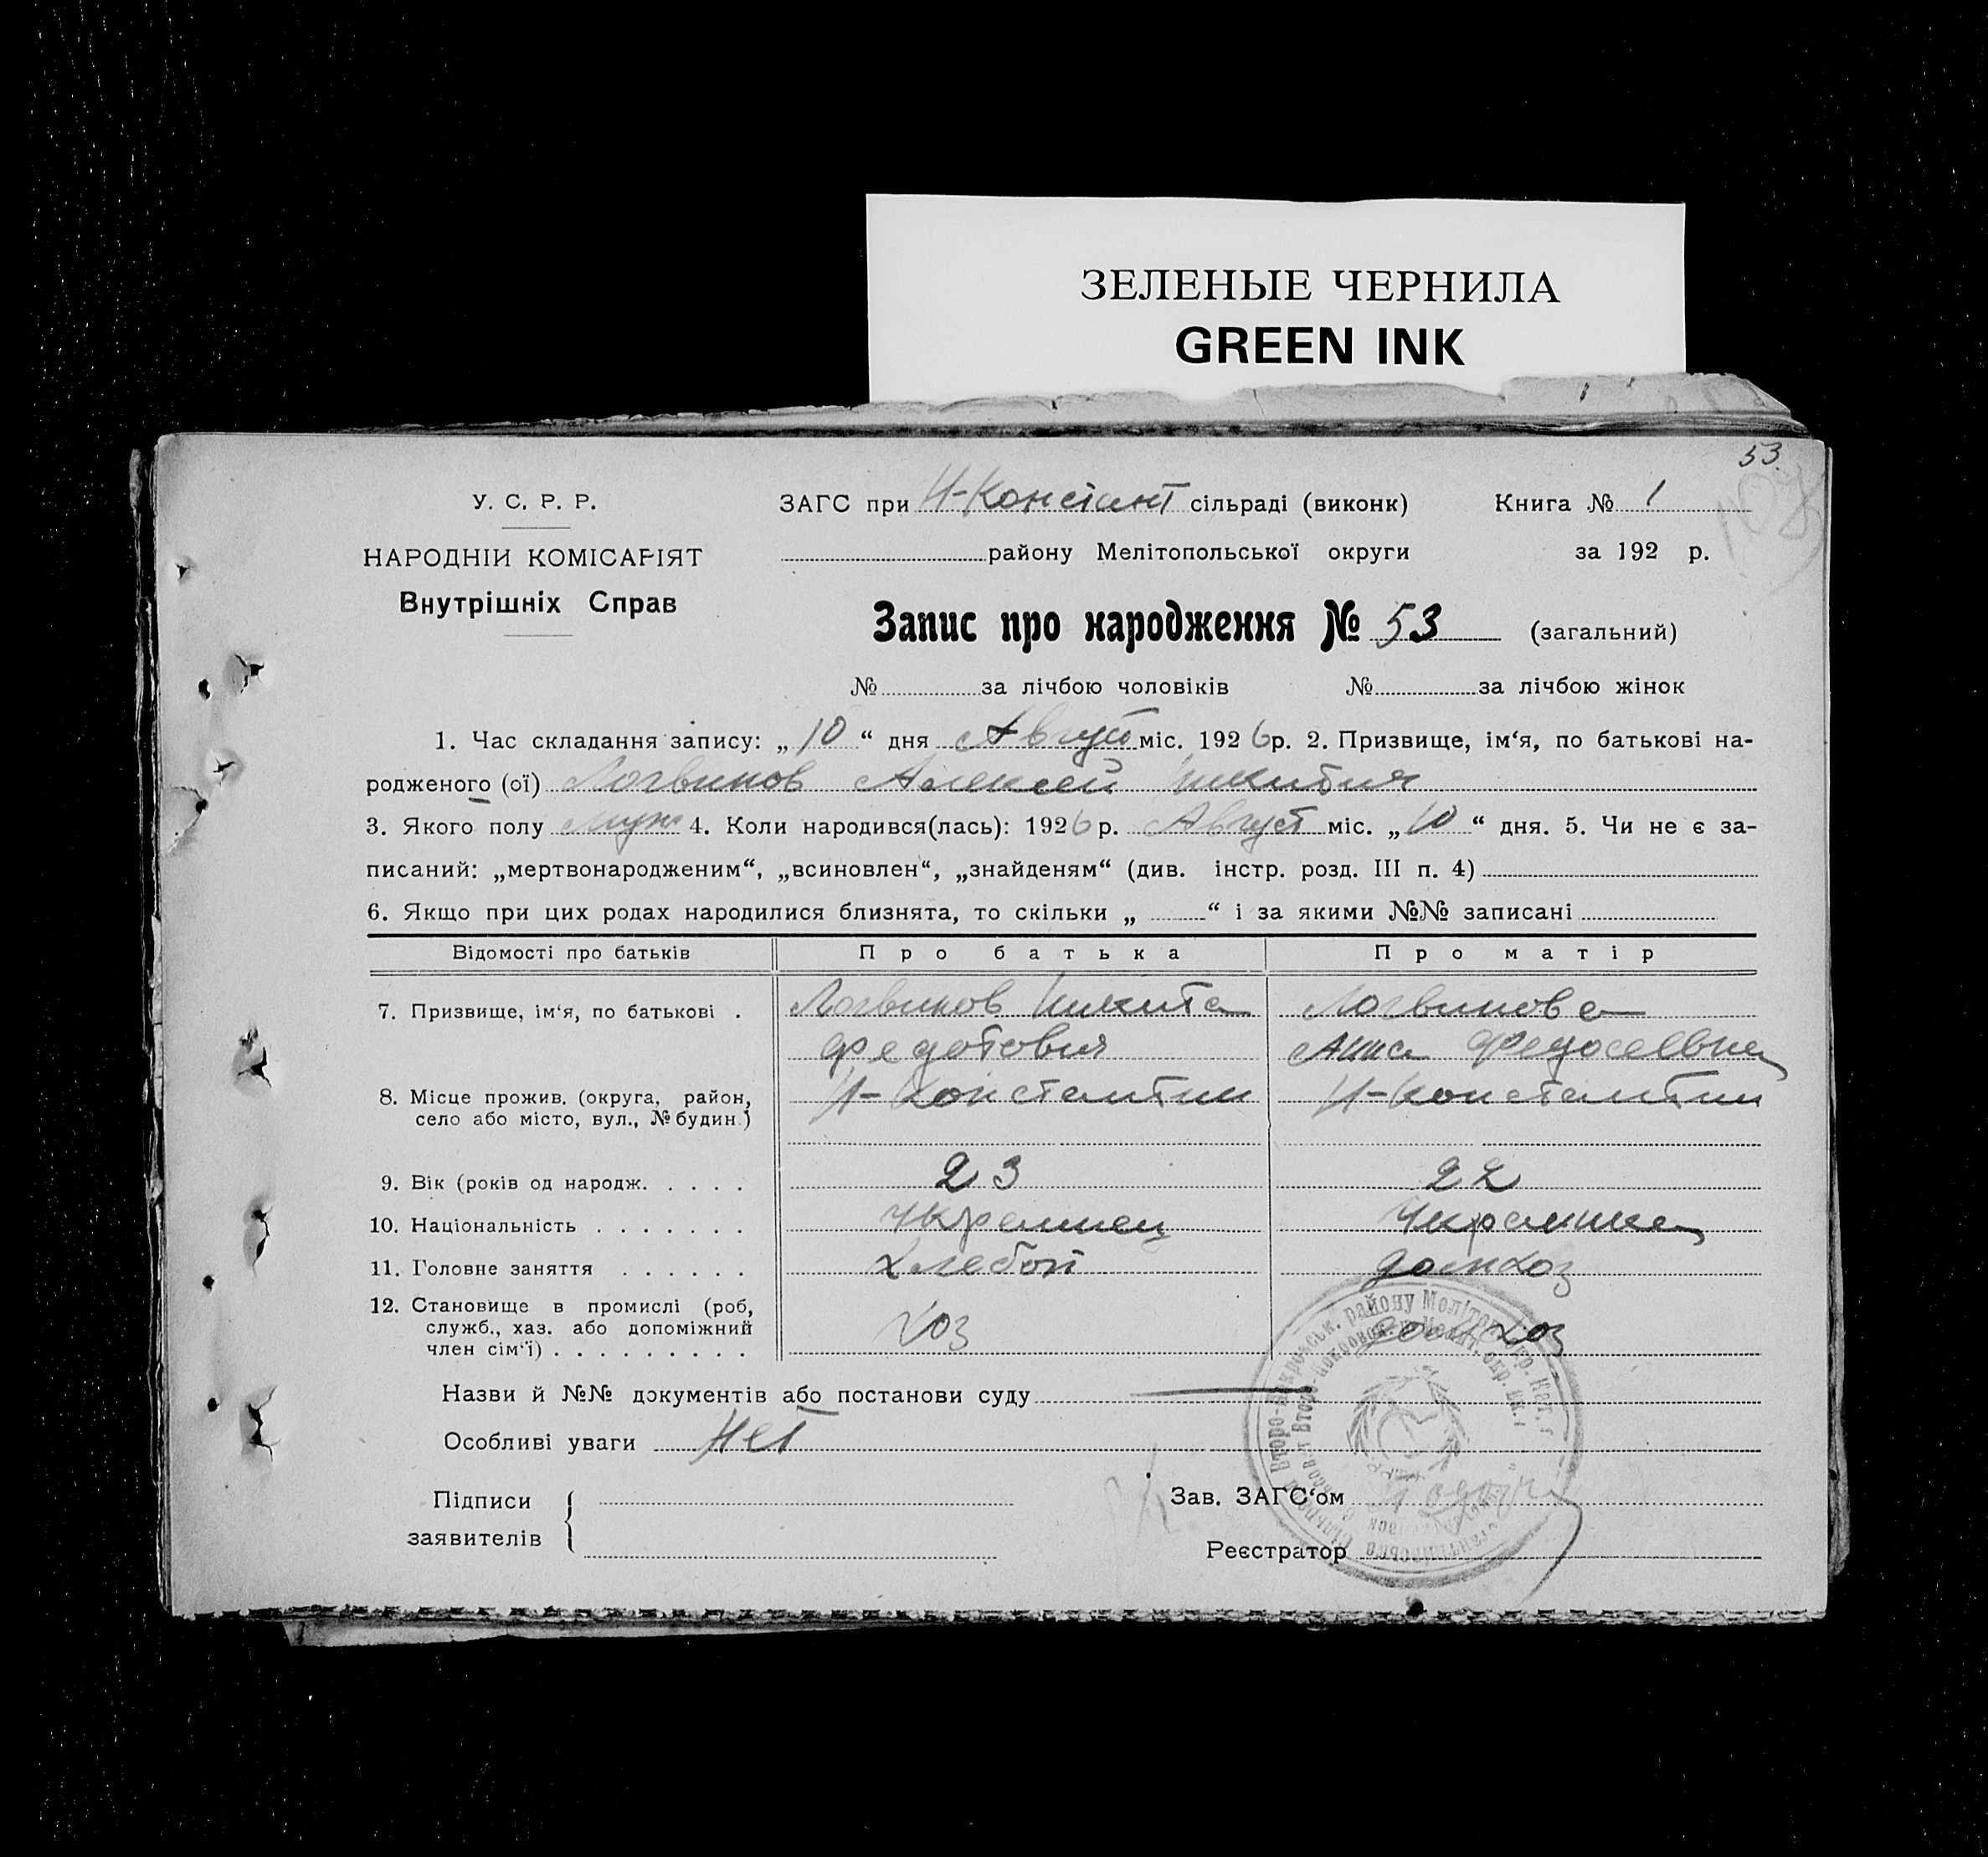 ЗЕЛЕНЫЕ ЧЕРНИЛА
GREEN INK
53.
У. С. Р. Р.
ЗАГС при Н-Констант сільраді (виконк) Книга № 1
НАРОДНІЙ КОМІСАРІЯТ
району Мелітопольської округи за 192 р.
Внутрішніх Справ
Запис про народження № 53 (загальний)
№ за лічбою чоловіків № за лічбою жінок
1. Час складання запису: „10“ дня Август міс. 1926 р. 2. Призвище, ім‘я, по батькові на-
родженого (ої) Логвинов Алексей Никитич
3. Якого полу муж 4. Коли народився(лась): 1926 р. Август міс. „10“ дня. 5. Чи не є за-
писаний: „мертвонародженим“, „всиновлен“, „знайденям“ (див. інстр. розд. III п. 4)
6. Якщо при цих родах народилися близнята, то скільки „ “ і за якими №№ записані
Відомості про батьків Про батька Про матір
7. Призвище, ім‘я, по батькові . Логвинов Никита Логвинова
Федотович Анна Федосеевна
8. Місце прожив. (округа, район, Н-Константин Н-Константин
село або місто, вул., № будин.)
9. Вік (років од народж. . . . . 23 22
10. Національність . . . . . . . Украинец Украинка
11. Головне заняття . . . . . . Хлебоп домхоз
12. Становище в промислі (роб,
служб., хаз. або допоміжний хоз домхоз
член сім‘ї) . . . . . . . . .
Назви й №№ документів або постанови суду
Особливі уваги Нет
Підписи
заявителів
Зав. ЗАГС‘ом
Реєстратор